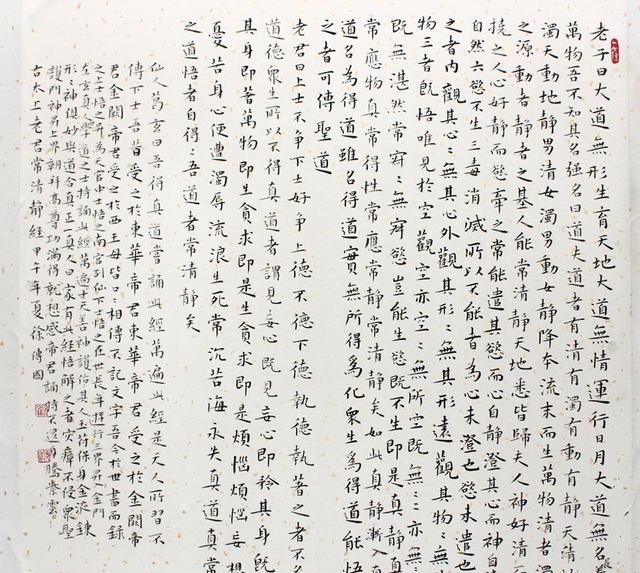 老子曰大道無形生育天地大道無情運行日月大道無名長
萬物吾不知其名強名曰道夫道者有清有濁有動有靜天清
濁天動地靜男清女濁男動女靜降本流末而生萬物清者濁
之源動者靜者之基人能常清靜天地悉皆歸夫人神好清
撓之人心好靜而慾牽之常能遣其慾而心自靜澄其心而神自
自然六慾不生三毒消滅所以不能者為心未澄也慾未遣也
之者內觀其心々無其心外觀其形々無其形遠觀其物々無
物三者既悟唯見於空觀空亦空々無所空既無々亦無
既無湛然常寂々無寂慾豈能生慾既不生即是真靜真
常應物真常得性常應常靜常清靜矣如此真靜漸入真
道名為得道雖名得道實無所得為化衆生為得道能悟
之者可傳聖道
老君曰上士不争下士好争上德不德下德執德執著之者不名
道德衆生所以不得真道者謂見妄心既見妄心即矜其身既
其身即著萬物即生貪求即是生貪求即是煩惱煩惱妄想
憂苦身心便遭濁辱流浪生死常沉苦海永失真道真常
之道悟者自得々悟道者常清靜矣
仙人葛玄曰吾得真道當誦此經萬遍此經是天人所習不
傳下士吾昔受之於東華帝君東華帝君受之於金闕帝
君金闕帝君受之於西王母皆口々相傳不記文字吾今於世書而錄
之上士悟之昇為天官中士悟之南宮列仙下士悟之在世長年遊行三界昇入金門
左玄真人曰學道之士持誦此經萬遍十天善神護佑其人玉符保身金液鍊
形々神俱妙與道合真正一真人曰家有此經悟解之者灾瘴不侵衆聖
護門神昇上界朝拜高尊功滿德就想感帝君誦持不退身騰紫雲
右太上老君常清靜經甲午年夏徐傳國